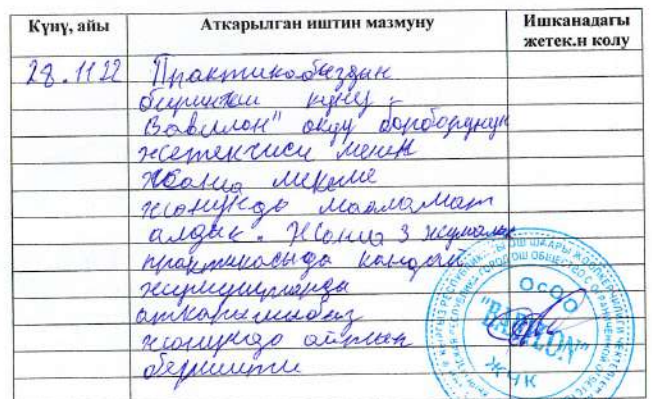 Күнү, айы
Аткарылган иштин мазмуну
Ишканадагы
жетек.н колу
28.11 22
Практикабыздын
биринчи күнү -
Вавилон" окуу борборунун
жетекчиси менен
жана мекеме
жөнүндө маалымат
алдык. Жана 3 жумалык
практикасыда кандай
жумуштарды
аткарышыбыз
жөнүндө айтып
беришти
ОсОО
"BABYLON"
ЖЧК